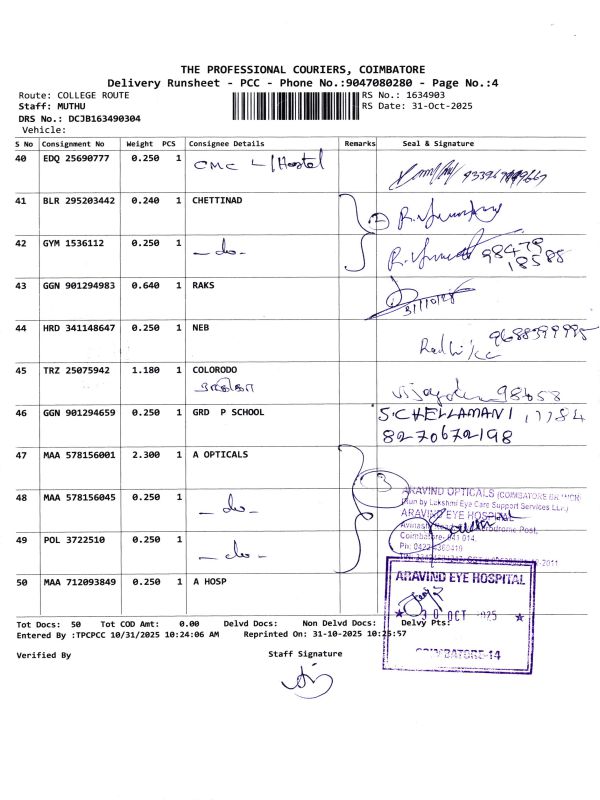 THE PROFESSIONAL COURIERS, COIMBATORE
Delivery Runsheet - PCC - Phone No.:9047080280 - Page No.:4
Route: COLLEGE ROUTE RS No.: 1634903
Staff: MUTHU RS Date: 31-Oct-2025
DRS No.: DCJB163490304
Vehicle:
S No Consignment No Weight PCS Consignee Details Remarks Seal & Signature
40 EDQ 25690777 0.250 1 CMC L/Hostel
41 BLR 295203442 0.240 1 CHETTINAD 2
42 GYM 1536112 0.250 1 - do - 98479
18585
43 GGN 901294983 0.640 1 RAKS 31/10/25
44 HRD 341148647 0.250 1 NEB
45 TRZ 25075942 1.180 1 COLORODO
46 GGN 901294659 0.250 1 GRD P SCHOOL S.CHELLAMANI
8270672198
47 MAA 578156001 2.300 1 A OPTICALS 3
48 MAA 578156045 0.250 1 - do - ARAVIND OPTICALS
(Run by Lakshmi Eye Care Support Services LLP.)
ARAVIND EYE HOSPITAL
49 POL 3722510 0.250 1 - do -
50 MAA 712093849 0.250 1 A HOSP ARAVIND EYE HOSPITAL
OCT
COIMBATORE-14
Tot Docs: 50 Tot COD Amt: 0.00 Delvd Docs: Non Delvd Docs: Delvy Pts:
Entered By :TPCPCC 10/31/2025 10:24:06 AM Reprinted On: 31-10-2025 10:25:57
Verified By Staff Signature